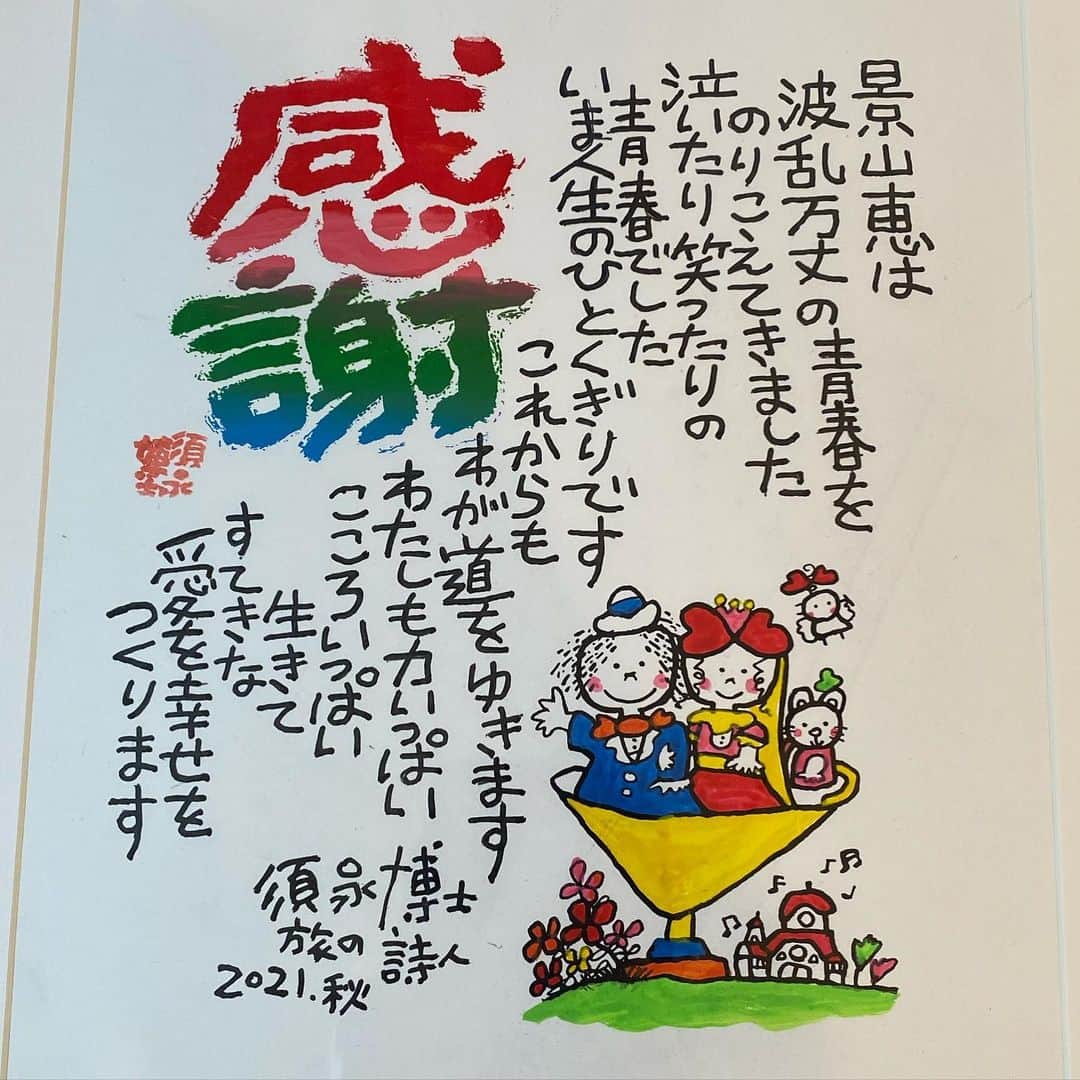 景山恵は
波乱万丈の青春を
のりこえてきました
泣いたり笑ったりの
青春でした
いま人生のひとくぎりです
これからも
わが道をゆきます
わたしも力いっぱい
こころいっぱい
生きて
すてきな
愛を幸せを
つくります
感
謝
博士 詩人
須永 旅の
2021.秋